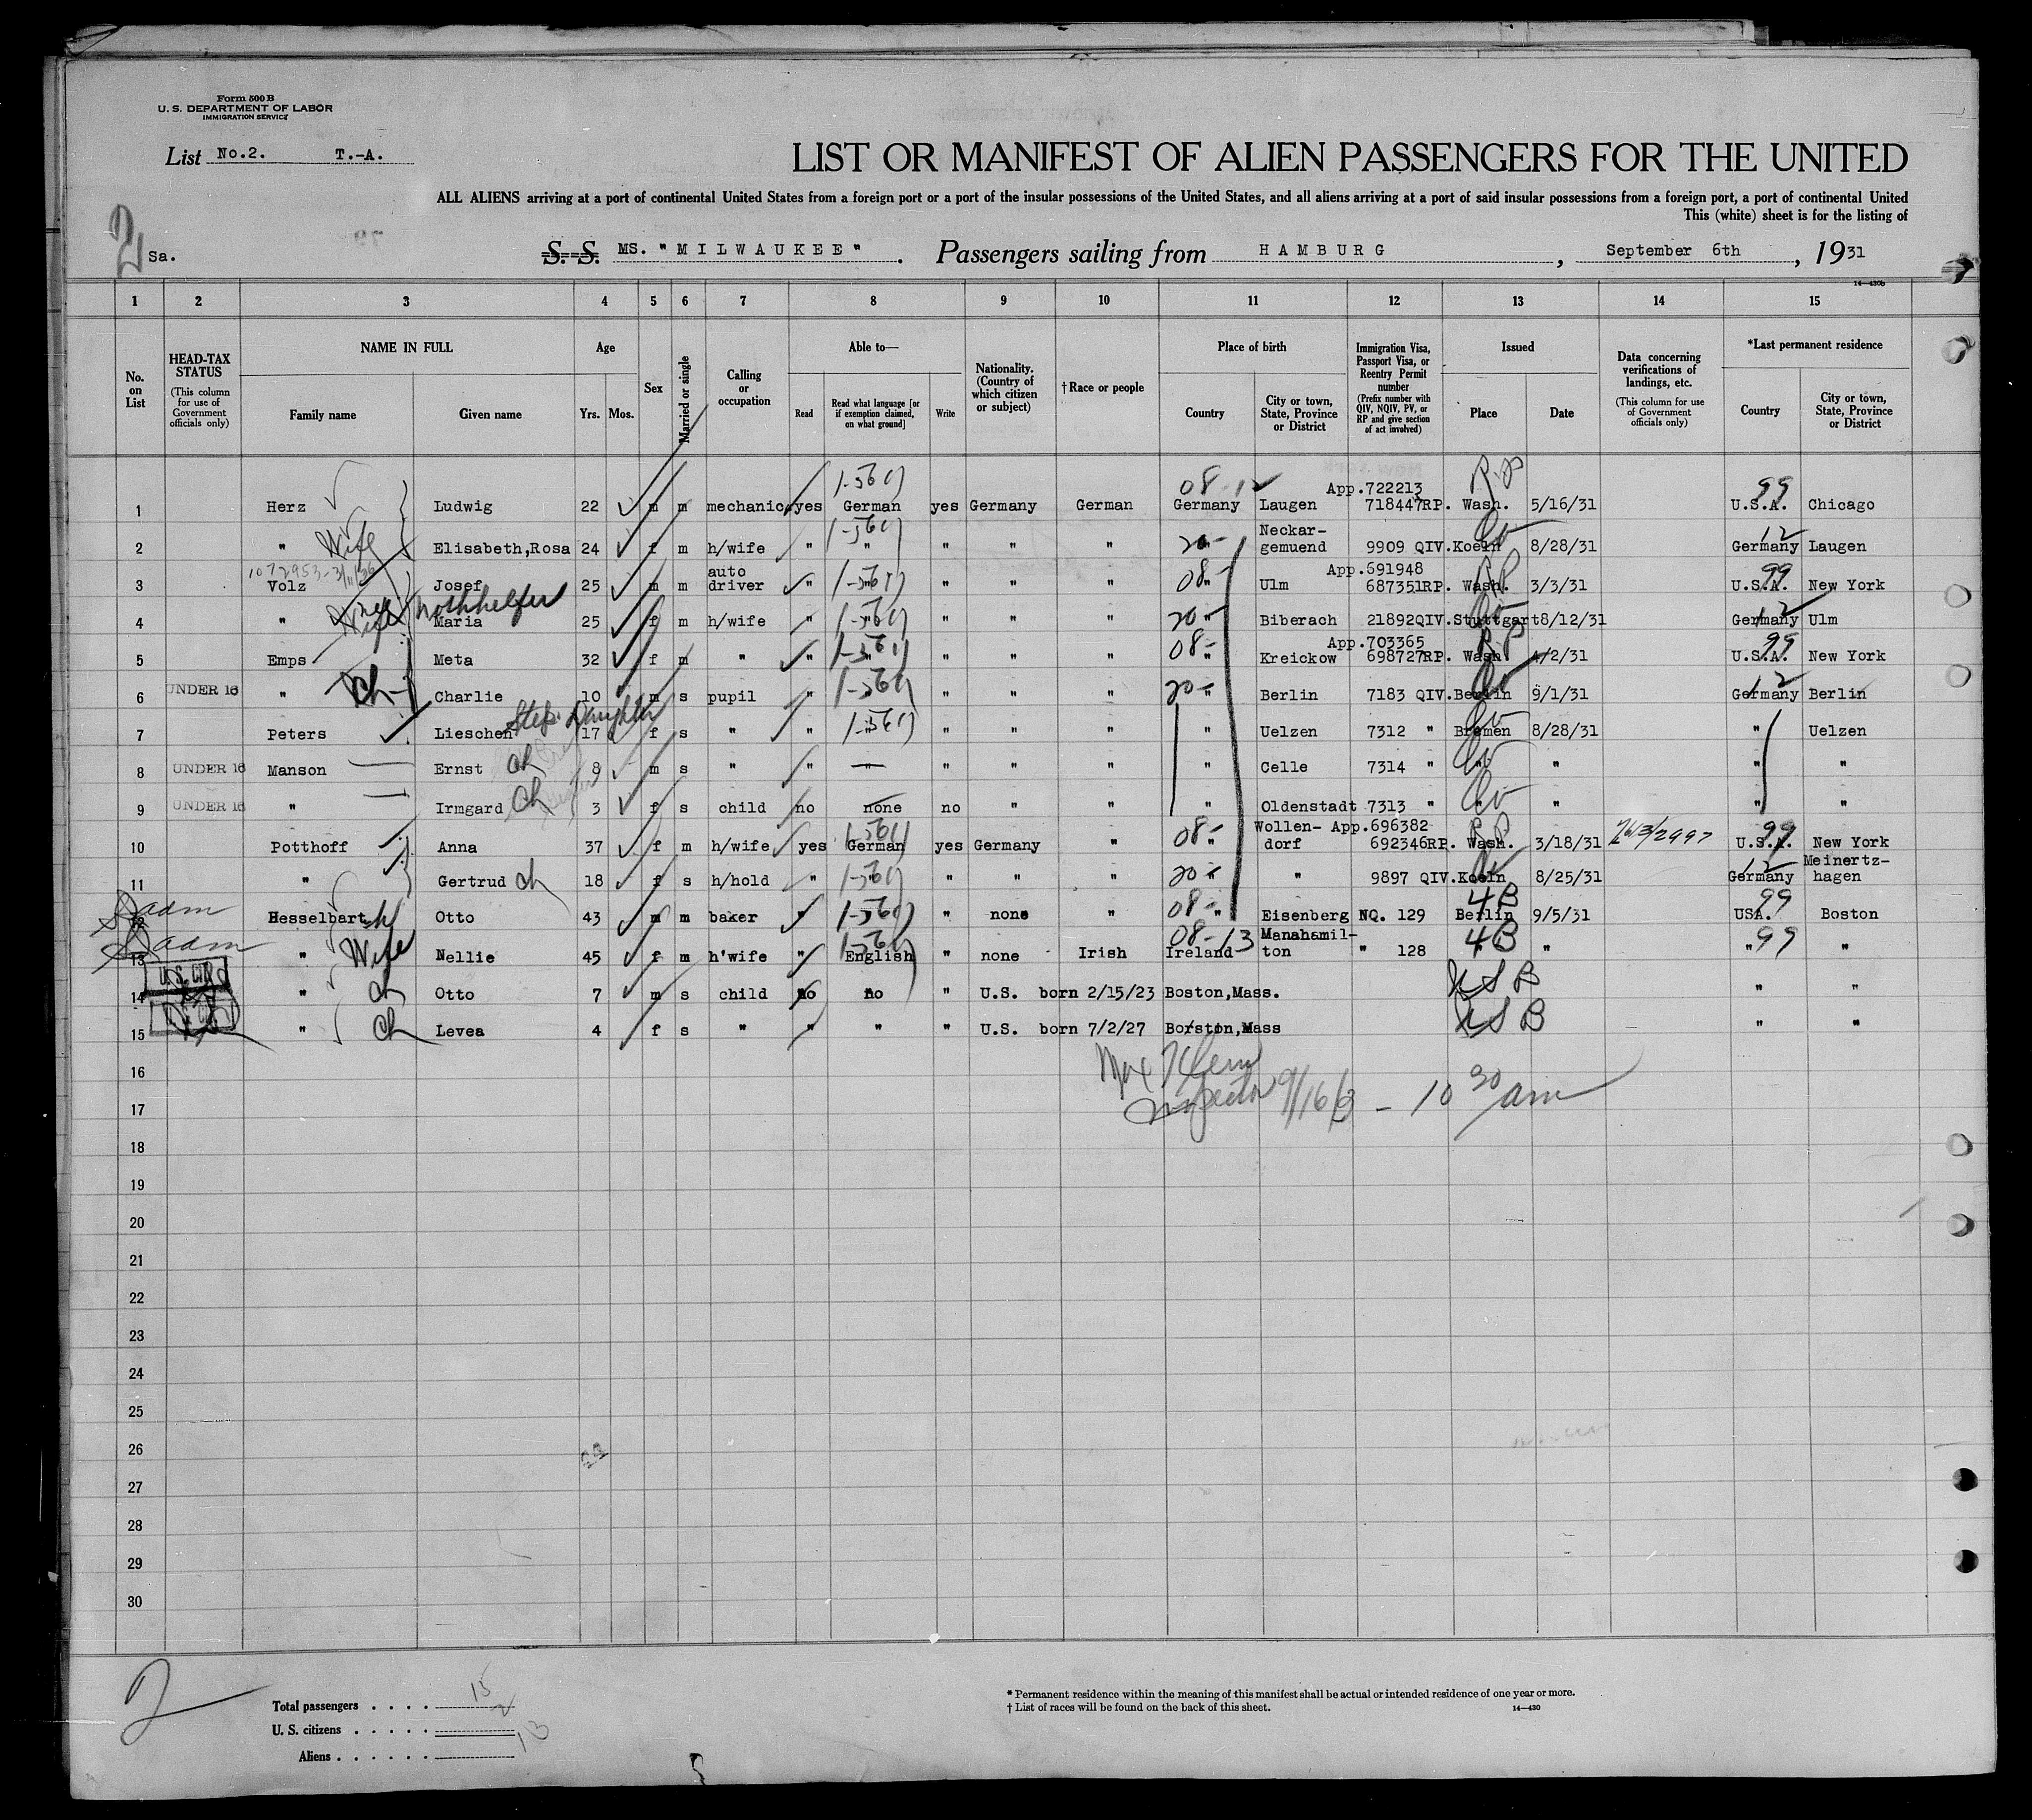 Form 500 B
U. S. DEPARTMENT OF LABOR
IMMIGRATION SERVICE
List No.2. T.-A.
LIST OR MANIFEST OF ALIEN PASSENGERS FOR THE UNITED
ALL ALIENS arriving at a port of continental United States from a foreign port or a port of the insular possessions of the United States, and all aliens arriving at a port of said insular possessions from a foreign port, a port of continental United
This (white) sheet is for the listing of
2 Sa.
S. S. MS. "MILWAUKEE". Passengers sailing from HAMBURG, September 6th, 1931
14—430b
1 2 3 4 5 6 7 8 9 10 11 12 13 14 15
No. on List
HEAD-TAX STATUS (This column for use of Government officials only)
NAME IN FULL Family name Given name
Age Yrs. Mos.
Sex
Married or single
Calling or occupation
Able to— Read Read what language [or if exemption claimed, on what ground] Write
Nationality. (Country of which citizen or subject)
†Race or people
Place of birth Country City or town, State, Province or District
Immigration Visa, Passport Visa, or Reentry Permit number (Prefix number with QIV, NQIV, PV, or RP and give section of act involved)
Issued Place Date
Data concerning verifications of landings, etc. (This column for use of Government officials only)
*Last permanent residence Country City or town, State, Province or District
1 Herz Ludwig 22 m m mechanic yes German yes Germany German 08-12 Germany Laugen App.722213 718447RP. Wash. RP 5/16/31 99 U.S.A. Chicago
2 " Wife Elisabeth,Rosa 24 f m h/wife " " " " " 20- " Neckar-gemuend 9909 QIV. Koeln 8/28/31 12 Germany Laugen
3 Volz Josef 25 m m auto driver " " " " " 08- " Ulm App.691948 687351RP. Wash. RP 3/3/31 99 U.S.A. New York
4 " Wife nee Nothhelfer Maria 25 f m h/wife " " " " " 20- " Biberach 21892QIV. Stuttgart 8/12/31 12 Germany Ulm
5 Emps Meta 32 f m " " " " " " 08- " Kreickow App.703365 698727RP. Wash. RP 4/2/31 99 U.S.A. New York
6 UNDER 16 " Ch Charlie 10 m s pupil " " " " " 20- " Berlin 7183 QIV. Berlin 9/1/31 12 Germany Berlin
7 Peters Lieschen Step Daughter 17 f s " " " " " " " Uelzen 7312 " Bremen 8/28/31 " Uelzen
8 UNDER 16 Manson Ernst ch 8 m s " " — " " " " Celle 7314 " " " " "
9 UNDER 16 " Irmgard Ch 3 f s child no none no " " " Oldenstadt 7313 " " " " "
10 Potthoff Anna 37 f m h/wife yes German yes Germany " 08- " Wollen-dorf App.696382 692346RP. Wash. RP 3/18/31 99 U.S.A. New York
11 " Gertrud ch 18 f s h/hold " " " " " 20- " " 9897 QIV. Koeln 8/25/31 12 Germany Meinertz-hagen
12 adm Hesselbart Otto 43 m m baker " " " none " 08- " Eisenberg NQ. 129 Berlin 4B 9/5/31 99 USA. Boston
13 adm " Wife Nellie 45 f m h'wife " English " none Irish 08-13 Ireland Manahamil-ton " 128 " 4B " " 99 "
14 " ch Otto 7 m s child no no " U.S. born 2/15/23 Boston,Mass. USB " "
15 " ch Levea 4 f s " " " " U.S. born 7/2/27 Borston,Mass USB " "
16
17 Inspector 9/16/3 - 10 30 am
18
19
20
21
22
23
24
25
26
27
28
29
30
2
Total passengers . . . . 15
U. S. citizens . . . . . 2
Aliens . . . . . . 13
* Permanent residence within the meaning of this manifest shall be actual or intended residence of one year or more.
† List of races will be found on the back of this sheet.
14—430